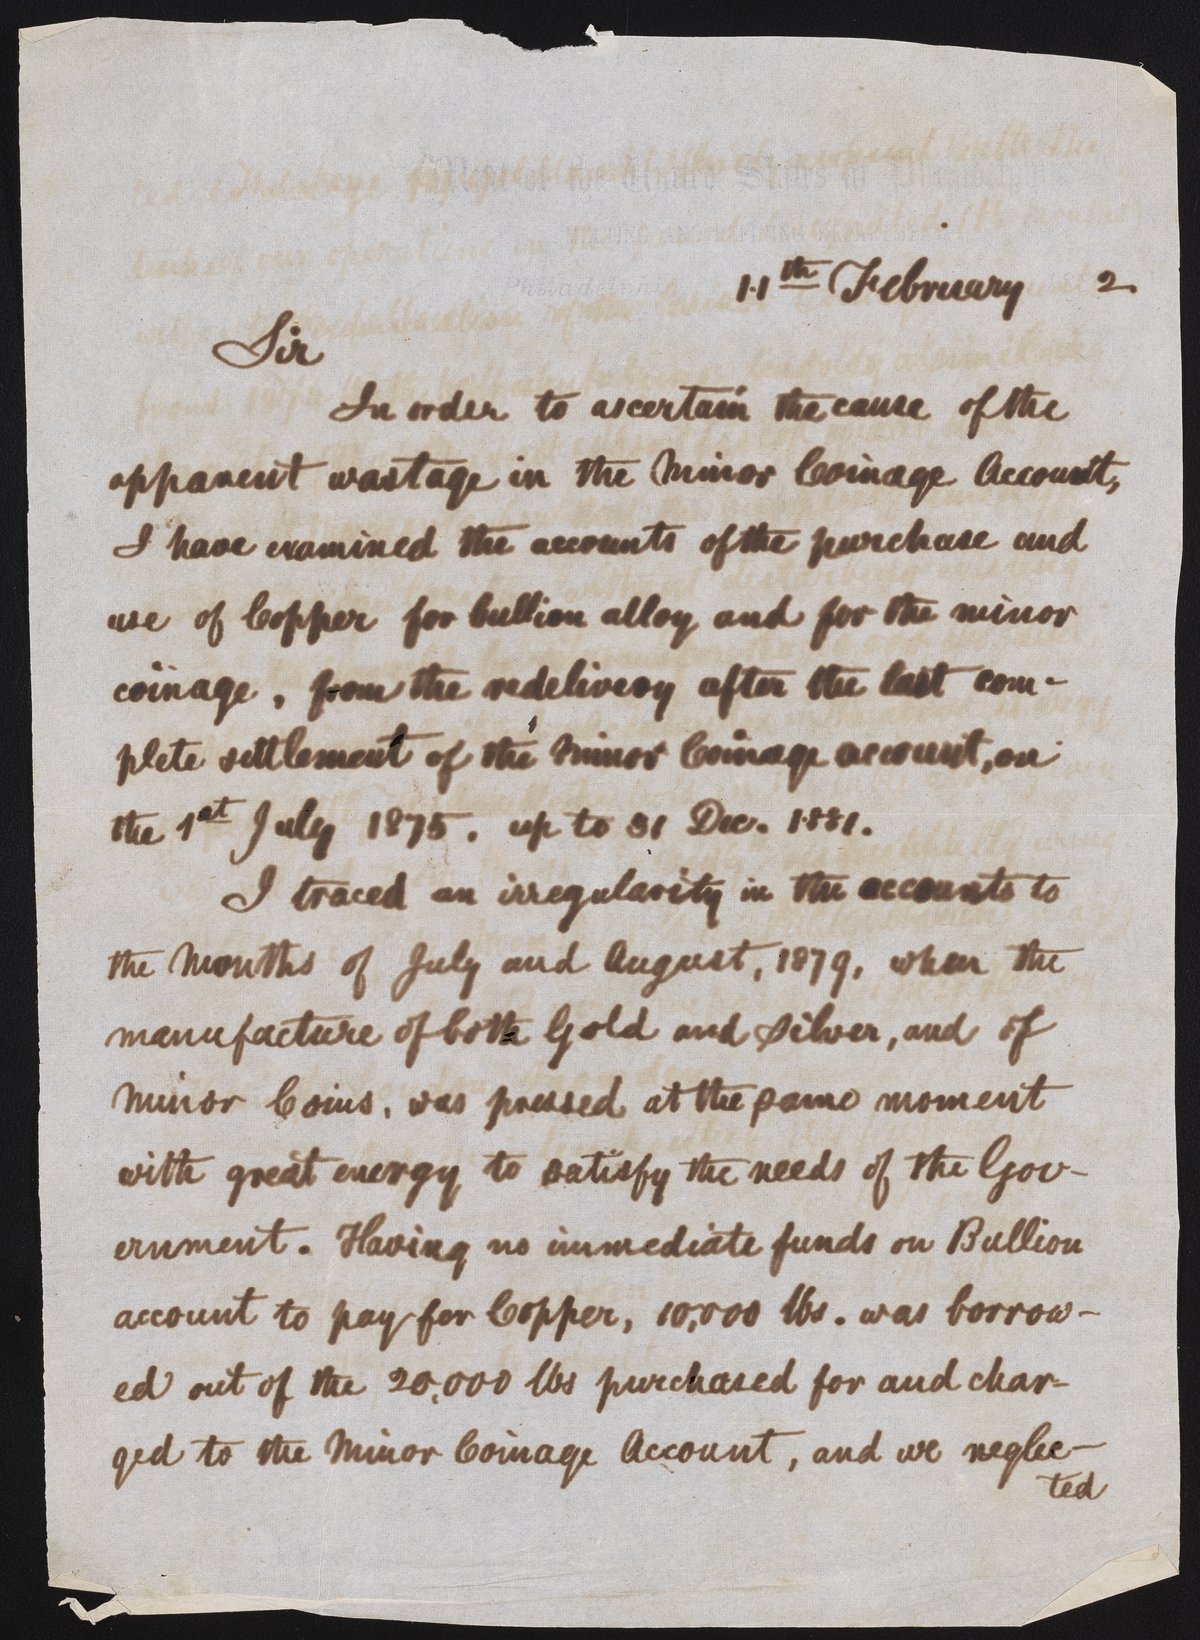 11th February 2.
Sir
In order to ascertain the cause of the
apparent wastage in the Minor Coinage Account,
I have examined the accounts of the purchase and
use of Copper for bullion alloy and for the minor
coinage, from the redelivery after the last com-
plete settlement of the Minor Coinage account, on
the 1st July 1875. up to 31 Dec. 1881.
I traced an irregularity in the accounts to
the Months of July and August, 1879, when the
manufacture of both Gold and Silver, and of
Minor Coins, was pressed at the same moment
with great energy to satisfy the needs of the Gov-
ernment. Having no immediate funds on Bullion
account to pay for Copper, 10,000 lbs. was borrow-
ed out of the 20,000 lbs purchased for and char-
ged to the Minor Coinage Account, and we neglec-
ted